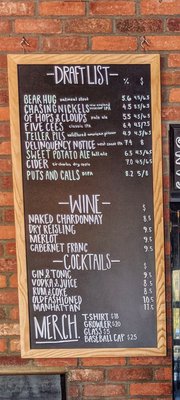 DRAFT LIST % $
BEAR HUG oatmeal stout 5.6 4.5/6.5
CHASING NICKELS 4.5 4.5/6.5
OF HOPS & CLOUDS pale ale 5.5 4.5/6.5
FIVE CEES classic IPA 6.4
TELLER PILS 4.9 4.5/6.5
DELINQUENCY NOTICE west coast IPA 7.4 8
SWEET POTATO ALE fall ale 5.5 4.5/6.5
CIDER 7.0 4.5/6.5
PUTS AND CALLS DIPA 8.2 5/8
WINE $
NAKED CHARDONNAY 8.5
DRY REISLING 9.5
MERLOT 9.5
CABERNET FRANC 9.5
COCKTAILS $
GIN & TONIC 9.5
VODKA & JUICE 8.5
RUM & COKE 8.5
OLD FASHIONED 10.5
MANHATTAN 11.5
MERCH.
T-SHIRT $18
GROWLER $20
GLASS $5
BASEBALL CAP $25